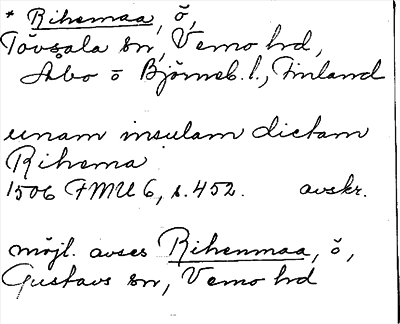 * Rihemaa, ö,
Tövsala sn, Vemo hd,
Åbo o Björneb. l., Finland
unam insulam dictam
Rihema
1506 FMU 6, s. 452. avskr.
möjl. avses Rihenmaa, ö,
Gustavs sn, Vemo hd